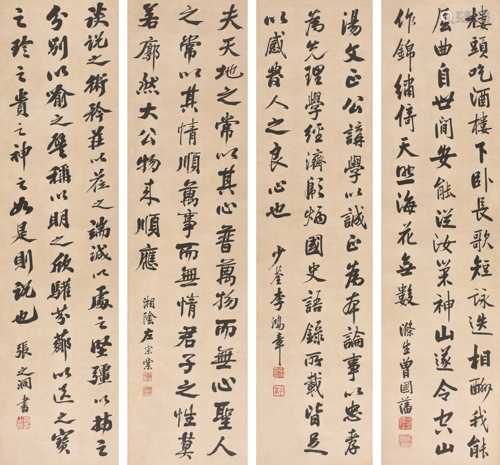 樓頭吃酒樓下卧長歌短詠迭相酬我能
屈曲自世間安能從汝巢神山遂令空山
作錦繡倚天照海花無數 滌生曾國藩
湯文正公講學以誠正為本論事以忠孝
為先理學經濟炳國史語錄所載皆足
以感發人之良心也 少荃李鴻章
夫天地之常以其心普萬物而無心聖人
之常以其情順萬事而無情君子之性莫
若廓然大公物來順應 湘陰左宗棠
談說之術矜莊以莅之端誠以處之堅彊以持之
分別以喻之譬稱以明之欣驩芬薌以送之寶
之珍之貴之神之如是則說也 張之洞書